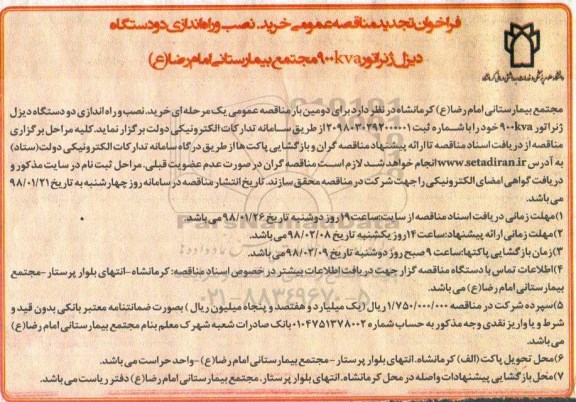 فراخوان تجدید مناقصه عمومی خرید، نصب و راه اندازی دو دستگاه
دیزل ژنراتور ۹۰۰kva مجتمع بیمارستانی امام رضا(ع)
مجتمع بیمارستانی امام رضا(ع) کرمانشاه در نظر دارد برای دومین بار مناقصه عمومی یک مرحله ای خرید، نصب و راه اندازی دو دستگاه دیزل
ژنراتور ۹۰۰kva خود را با شماره ثبت ۲۰۹۸۰۳۰۳۹۲۰۰۰۰۰۱ از طریق سامانه تدارکات الکترونیکی دولت برگزار نماید. کلیه مراحل برگزاری
مناقصه از دریافت اسناد مناقصه تا ارائه پیشنهاد مناقصه گران و بازگشایی پاکت ها از طریق درگاه سامانه تدارکات الکترونیکی دولت (ستاد)
به آدرس www.setadiran.ir انجام خواهد شد. لازم است مناقصه گران در صورت عدم عضویت قبلی، مراحل ثبت نام در سایت مذکور و
دریافت گواهی امضای الکترونیکی را جهت شرکت در مناقصه محقق سازند. تاریخ انتشار مناقصه در سامانه روز چهارشنبه به تاریخ ۹۸/۰۱/۲۱
می باشد.
۱)مهلت زمانی دریافت اسناد مناقصه از سایت: ساعت ۱۹ روز دوشنبه تاریخ ۹۸/۰۱/۲۶ می باشد.
۲)مهلت زمانی ارائه پیشنهاد: ساعت ۱۴ روز یکشنبه تاریخ ۹۸/۰۲/۰۸ می باشد.
۳)زمان بازگشایی پاکتها: ساعت ۹ صبح روز دوشنبه تاریخ ۹۸/۰۲/۰۹ می باشد.
۴)اطلاعات تماس با دستگاه مناقصه گزار جهت دریافت اطلاعات بیشتر در خصوص اسناد مناقصه: کرمانشاه-انتهای بلوار پرستار -مجتمع
بیمارستانی امام رضا(ع) می باشد.
۵)سپرده شرکت در مناقصه ۱/۷۵۰/۰۰۰/۰۰۰ ریال (یک میلیارد و هفتصد و پنجاه میلیون ریال) بصورت ضمانتنامه معتبر بانکی بدون قید و
شرط و یا واریز نقدی وجه مذکور به حساب شماره ۰۱۰۴۷۵۱۳۷۸۰۰۲ بانک صادرات شعبه شهرک معلم بنام مجتمع بیمارستانی امام رضا(ع)
می باشد.
۶)محل تحویل پاکت (الف) کرمانشاه، انتهای بلوار پرستار -مجتمع بیمارستانی امام رضا(ع) -واحد حراست می باشد.
۷)محل بازگشایی پیشنهادات واصله در محل کرمانشاه، انتهای بلوار پرستار، مجتمع بیمارستانی امام رضا(ع) دفتر ریاست می باشد.
ParsNamadData
۰۲۱-۸۸۳۴۹۶۷۰-۵